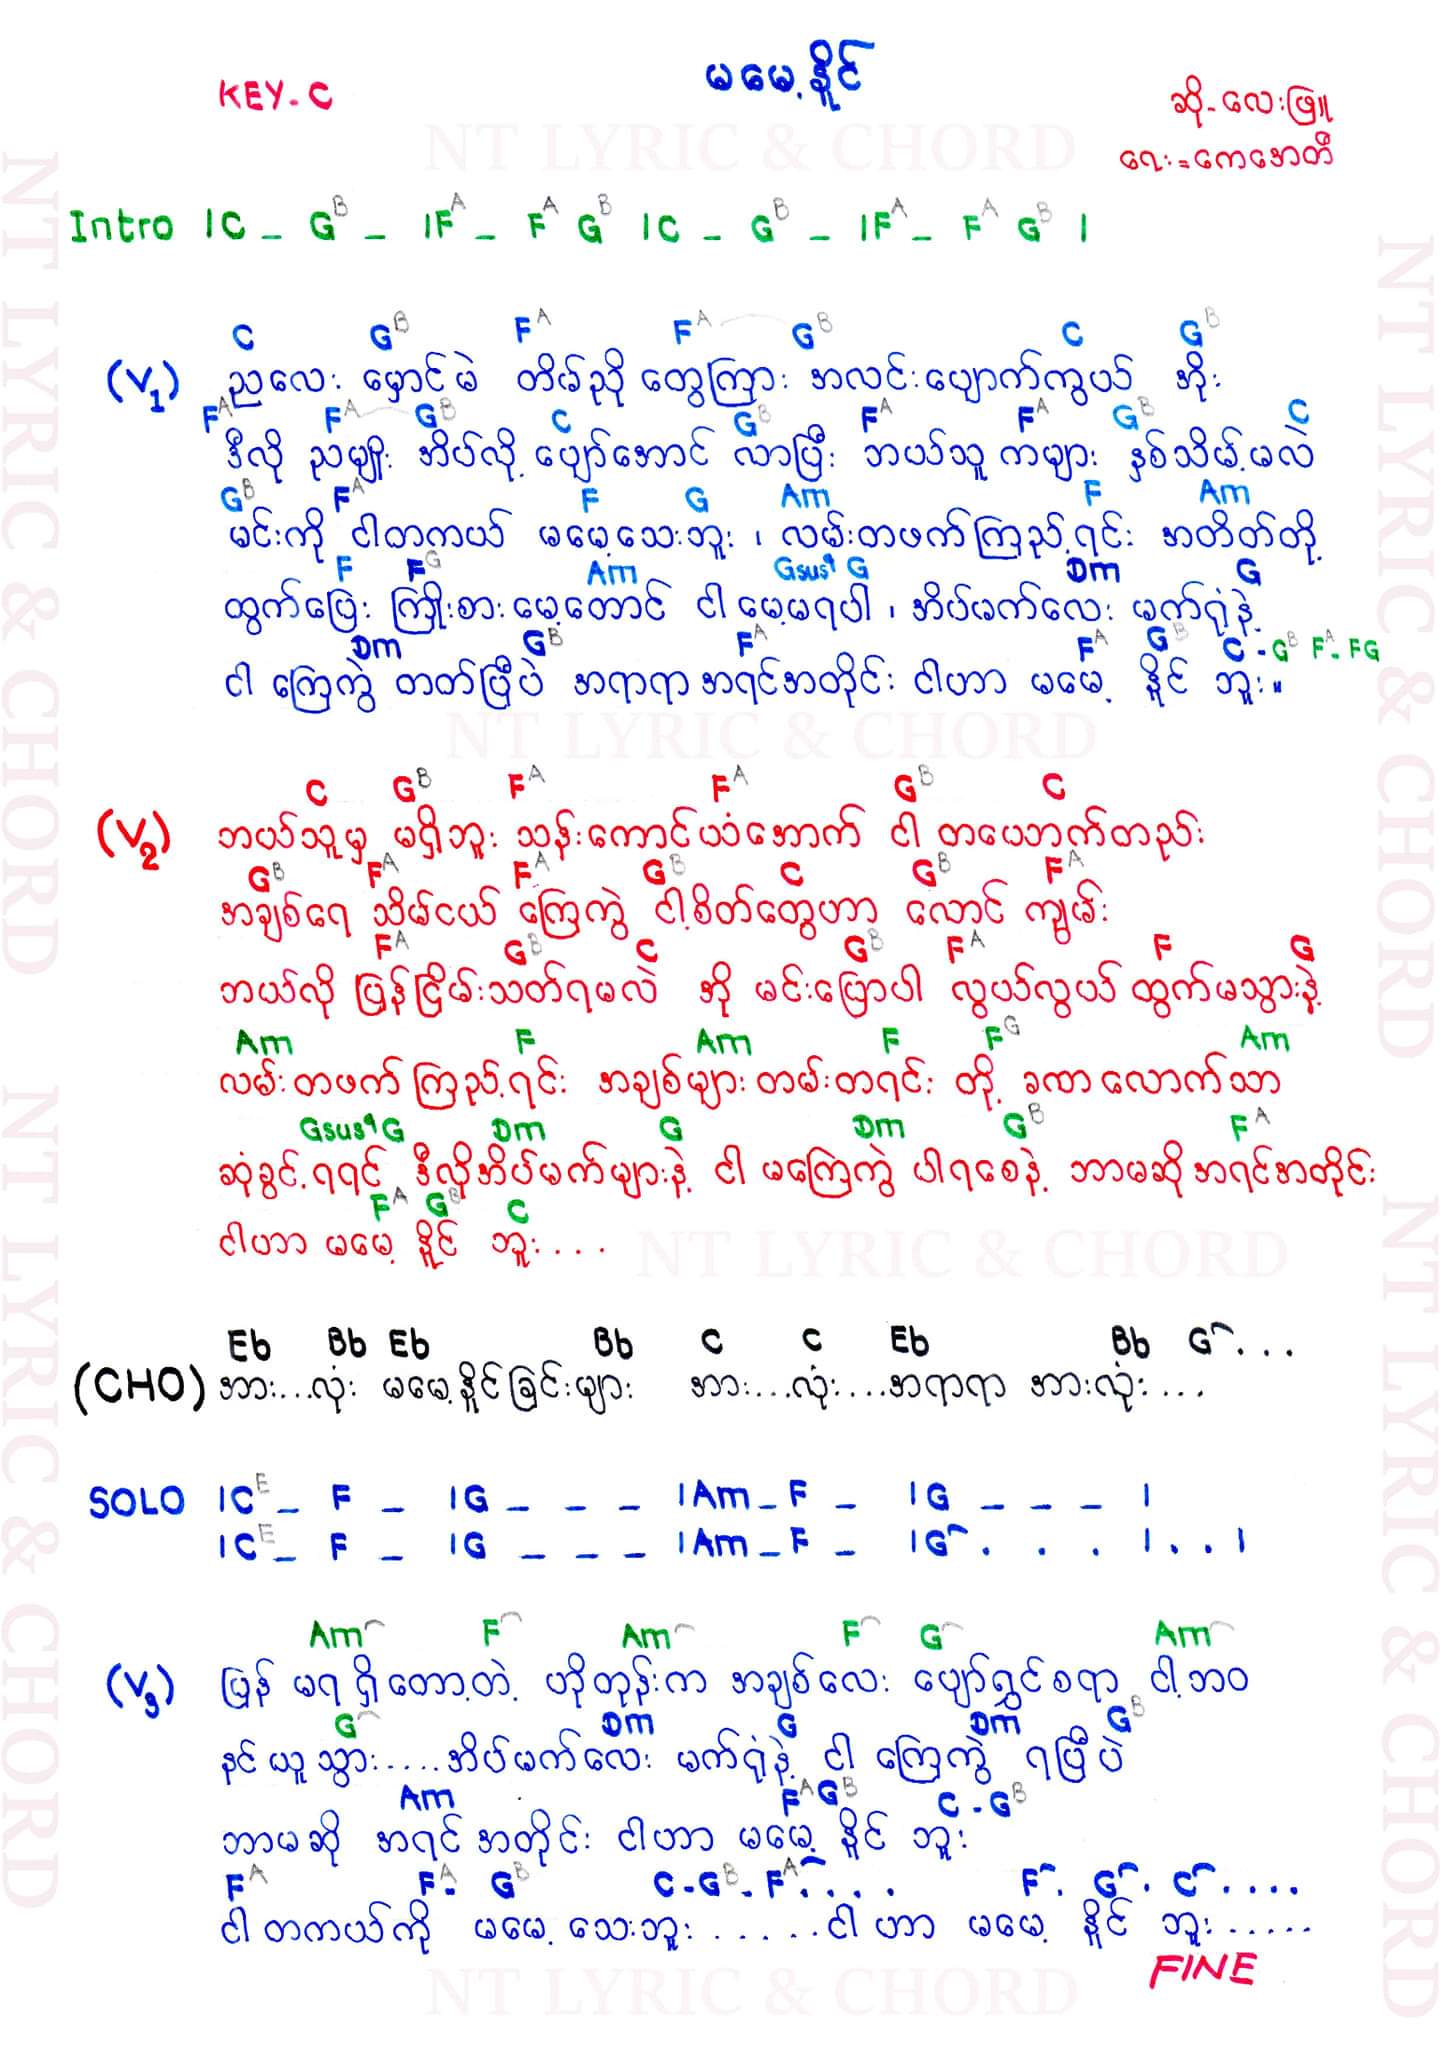 မမေ့နိုင်
KEY-C
ဆို-လေးဖြူ
ရေး=ကေအေတီ
Intro |C _ G^B _ |F^A _ F^A G^B |C _ G^B _ |F^A _ F^A G^B |
C G^B F^A F^A G^B C G^B
(V1) ညလေး မှောင်မဲ တိမ်ညို တွေကြား အလင်းပျောက်ကွယ် အိုး
F^A F^A G^B C G^B F^A F^A G^B C
ဒီလို ညမျိုး အိပ်လို့ ပျော်အောင် လာပြီး ဘယ်သူ ကများ နှစ်သိမ့်မလဲ
G^B F^A F G Am F Am
မင်းကို ငါတကယ် မမေ့သေးဘူး ၊ လမ်းတဖက်ကြည့်ရင်း အတိတ်တို့
F F^G Am Gsus4 G Dm G
ထွက်ပြေး ကြိုးစားမေ့တောင် ငါ မေ့မရပါ ၊ အိပ်မက်လေး မက်ရုံနဲ့
Dm G^B F^A F^A G^B C - G^B F^A - FG
ငါ ကြေကွဲ တတ်ပြီပဲ အရာရာ အရင်အတိုင်း ငါဟာ မမေ့ နိုင် ဘူး။
C G^B F^A F^A G^B C
(V2) ဘယ်သူမှ မရှိဘူး သန်းကောင်ယံအောက် ငါ တယောက်တည်း
G^B F^A F^A G^B C G^B F^A
အချစ်ရေ သိမ်ငယ် ကြေကွဲ ငါ့စိတ်တွေဟာ လောင် ကျွမ်း
F^A G^B C G^B F^A F G
ဘယ်လို ပြန်ငြိမ်းသတ်ရမလဲ အို မင်းပြောပါ လွယ်လွယ် ထွက်မသွားနဲ့
Am F Am F F^G Am
လမ်းတဖက် ကြည့်ရင်း အချစ်များ တမ်းတရင်း တို့ ခဏ လောက်သာ
Gsus4 G Dm G Dm G^B F^A
ဆုံခွင့်ရရင် ဒီလိုအိပ်မက်များနဲ့ ငါ မကြေကွဲ ပါရစေနဲ့ ဘာမဆို အရင်အတိုင်း
F^A G^B C
ငါဟာ မမေ့ နိုင် ဘူး...
Eb Bb Eb Bb C C Eb Bb G ...
(CHO) အား...လုံး မမေ့နိုင်ခြင်းများ အား...လုံး...အရာရာ အားလုံး...
SOLO |C^E _ F _ |G _ _ _ |Am _ F _ |G _ _ _ |
|C^E _ F _ |G _ _ _ |Am _ F _ |G . . . | . . |
Am F Am F G Am
(V3) ပြန် မရ ရှိတော့တဲ့ ဟိုတုန်းက အချစ်လေး ပျော်ရွှင်စရာ ငါ့ဘဝ
G Dm G Dm G^B
နင်ယူသွား.....အိပ်မက်လေး မက်ရုံနဲ့ ငါ ကြေကွဲ ရပြီပဲ
Am F^A G^B C - G^B
ဘာမဆို အရင်အတိုင်း ငါဟာ မမေ့ နိုင် ဘူး
F^A F^A - G^B C - G^B - F^A .... F . G . C ....
ငါ တကယ်ကို မမေ့ သေးဘူး ......ငါ ဟာ မမေ့ နိုင် ဘူး .....
FINE
NT LYRIC & CHORD